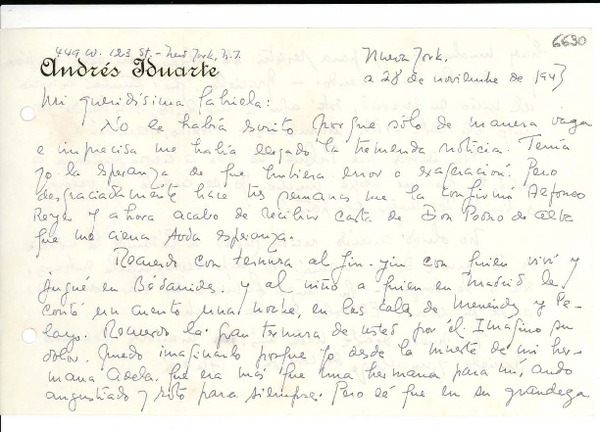 6630
449 W. 123 St. - New York, N.Y.
Andrés Iduarte
Nueva York,
a 28 de noviembre de 1943
Mi queridísima Gabriela:
No le había escrito porque sólo de manera vaga
e imprecisa me había llegado la tremenda noticia. Tenía
yo la esperanza de que hubiera error o exageración. Pero
desgraciadamente hace tres semanas me la confirmó Alfonso
Reyes y ahora acabo de recibir carta de Don Pedro de Alba
que me cierra toda esperanza.
Recuerdo con ternura al Yin-Yin con quien viví y
jugué en Bédarrides, y al niño a quien en Madrid le
conté un cuento una noche, en las calles de Menéndez y Pe-
layo. Recuerdo la gran ternura de usted por él. Imagino su
dolor. Puedo imaginarlo porque yo desde la muerte de mi her-
mana Adela, que era más que una hermana para mí, ando
angustiado y roto para siempre. Pero sé que en su grandeza